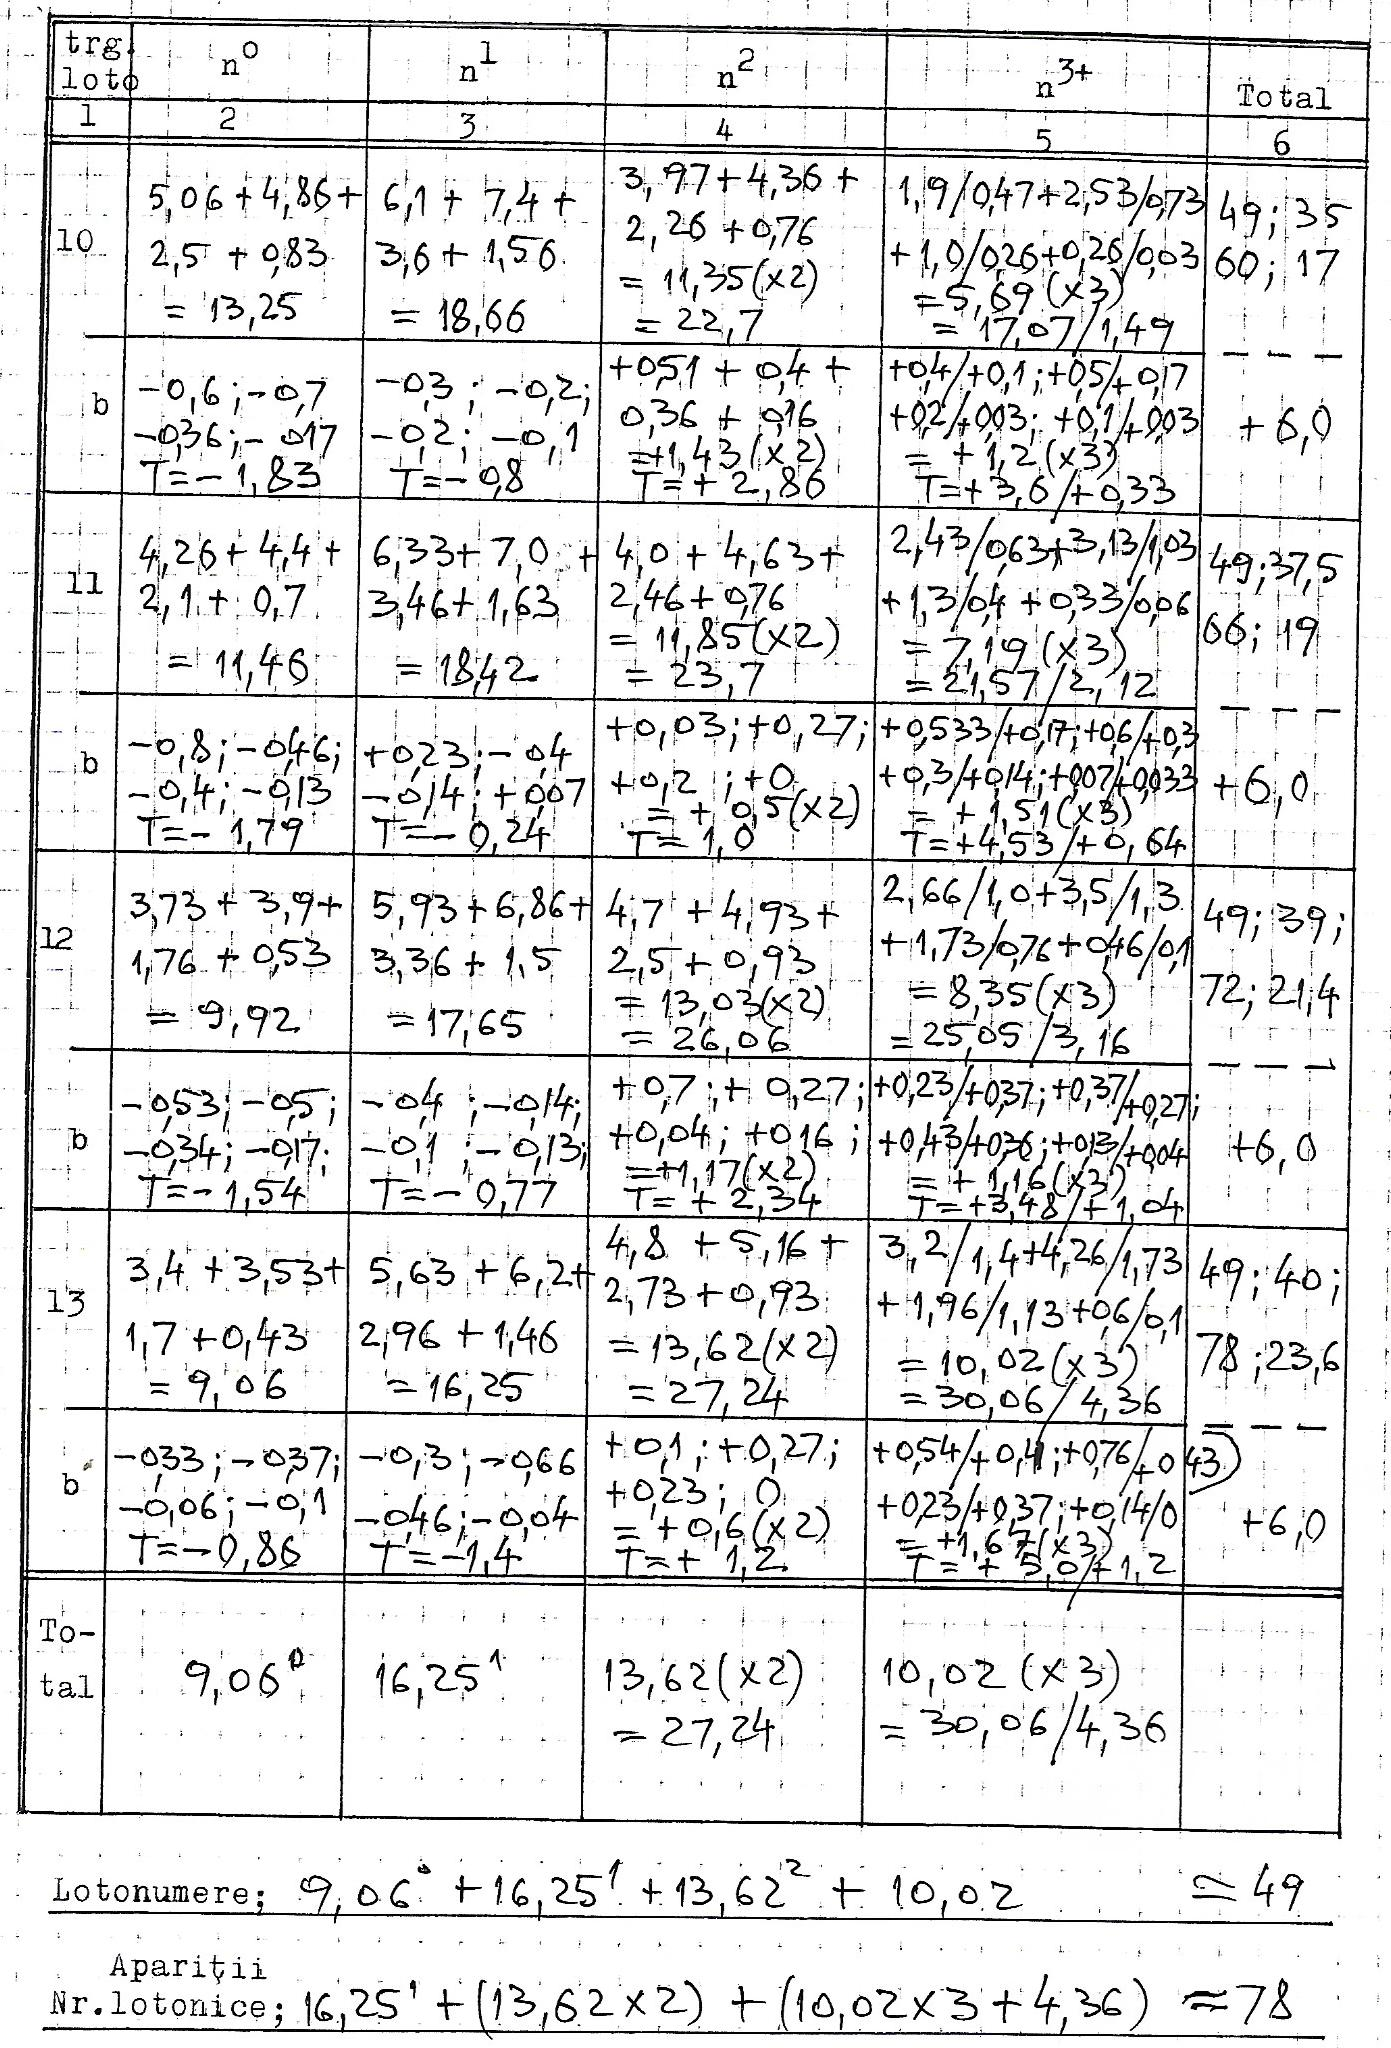 trg. loto n⁰ n¹ n² n³⁺ Total
1 2 3 4 5 6
10
5,06 + 4,86 +
2,5 + 0,83
= 13,25
6,1 + 7,4 +
3,6 + 1,56
= 18,66
3,97 + 4,36 +
2,26 + 0,76
= 11,35 (x2)
= 22,7
1,9/0,47 + 2,53/0,73
+ 1,0/0,26 + 0,26/0,03
= 5,69 (x3)
= 17,07/1,49
49; 35
60; 17
b
-0,6; -0,7
-0,36; -0,17
T = -1,83
-0,3; -0,2;
-0,2; -0,1
T = -0,8
+0,51 + 0,4 +
0,36 + 0,16
= +1,43 (x2)
T = +2,86
+0,4/+0,1; +0,5/+0,17
+0,2/+0,03; +0,1/+0,03
= +1,2 (x3)
T = +3,6/+0,33
+6,0
11
4,26 + 4,4 +
2,1 + 0,7
= 11,46
6,33 + 7,0 +
3,46 + 1,63
= 18,42
4,0 + 4,63 +
2,46 + 0,76
= 11,85 (x2)
= 23,7
2,43/0,63 + 3,13/1,03
+ 1,3/0,4 + 0,33/0,06
= 7,19 (x3)
= 21,57/2,12
49; 37,5
66; 19
b
-0,8; -0,46;
-0,4; -0,13
T = -1,79
+0,23; -0,4
-0,14; +0,07
T = -0,24
+0,03; +0,27;
+0,2; +0
= +0,5 (x2)
T = 1,0
+0,533/+0,17; +0,6/+0,3
+0,3/+0,14; +0,07/+0,033
= +1,51 (x3)
T = +4,53/+0,64
+6,0
12
3,73 + 3,9 +
1,76 + 0,53
= 9,92
5,93 + 6,86 +
3,36 + 1,5
= 17,65
4,7 + 4,93 +
2,5 + 0,93
= 13,03 (x2)
= 26,06
2,66/1,0 + 3,5/1,3
+ 1,73/0,76 + 0,46/0,1
= 8,35 (x3)
= 25,05/3,16
49; 39;
72; 21,4
b
-0,53; -0,5;
-0,34; -0,17;
T = -1,54
-0,4; -0,14;
-0,1; -0,13;
T = -0,77
+0,7; +0,27;
+0,04; +0,16;
= +1,17 (x2)
T = +2,34
+0,23/+0,37; +0,37/+0,27;
+0,43/+0,36; +0,13/+0,04
= +1,16 (x3)
T = +3,48/+1,04
+6,0
13
3,4 + 3,53 +
1,7 + 0,43
= 9,06
5,63 + 6,2 +
2,96 + 1,46
= 16,25
4,8 + 5,16 +
2,73 + 0,93
= 13,62 (x2)
= 27,24
3,2/1,4 + 4,26/1,73
+ 1,96/1,13 + 0,6/0,1
= 10,02 (x3)
= 30,06/4,36
49; 40;
78; 23,6
b
-0,33; -0,37;
-0,06; -0,1
T = -0,86
-0,3; -0,66
-0,46; -0,04
T = -1,4
+0,1; +0,27;
+0,23; 0
= +0,6 (x2)
T = + 1,2
+0,54/+0,4; +0,76/+0,43)
+0,23/+0,37; +0,14/0
= +1,67 (x3)
T = + 5,0/+1,2
+6,0
To-
tal
9,06⁰
16,25¹
13,62 (x2)
= 27,24
10,02 (x3)
= 30,06/4,36
Lotonumere; 9,06⁰ + 16,25¹ + 13,62² + 10,02 ≃ 49
Apariții
Nr.lotonice; 16,25¹ + (13,62 x 2) + (10,02 x 3 + 4,36) ≈ 78